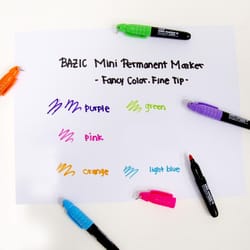 BAZIC Mini Permanent Marker
- Fancy Color. Fine Tip -
purple
green
pink
orange
light blue